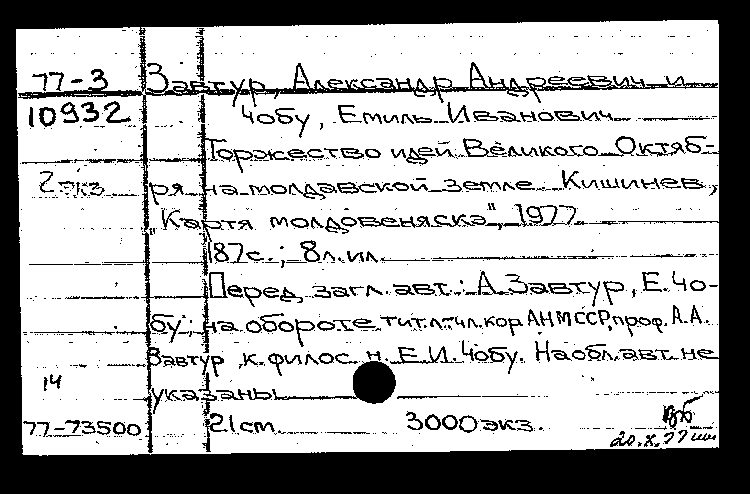 77-3 Завтур, Александр Андреевич и
10932 Чобу, Емиль Иванович
Торжество идей Великого Октяб-
2 экз ря на молдавской земле. Кишинев,
"Картя молдовеняскэ", 1977
187с.; 8л.ил.
Перед загл. авт.: А.Завтур, Е.Чо-
бу; на обороте тит.л.: чл.кор АН МССР, проф. А.А.
Завтур, к.филос. н. Е.И.Чобу. На обл. авт. не
14 указаны
77-73500 21cm. 3000 экз.
20.X.77